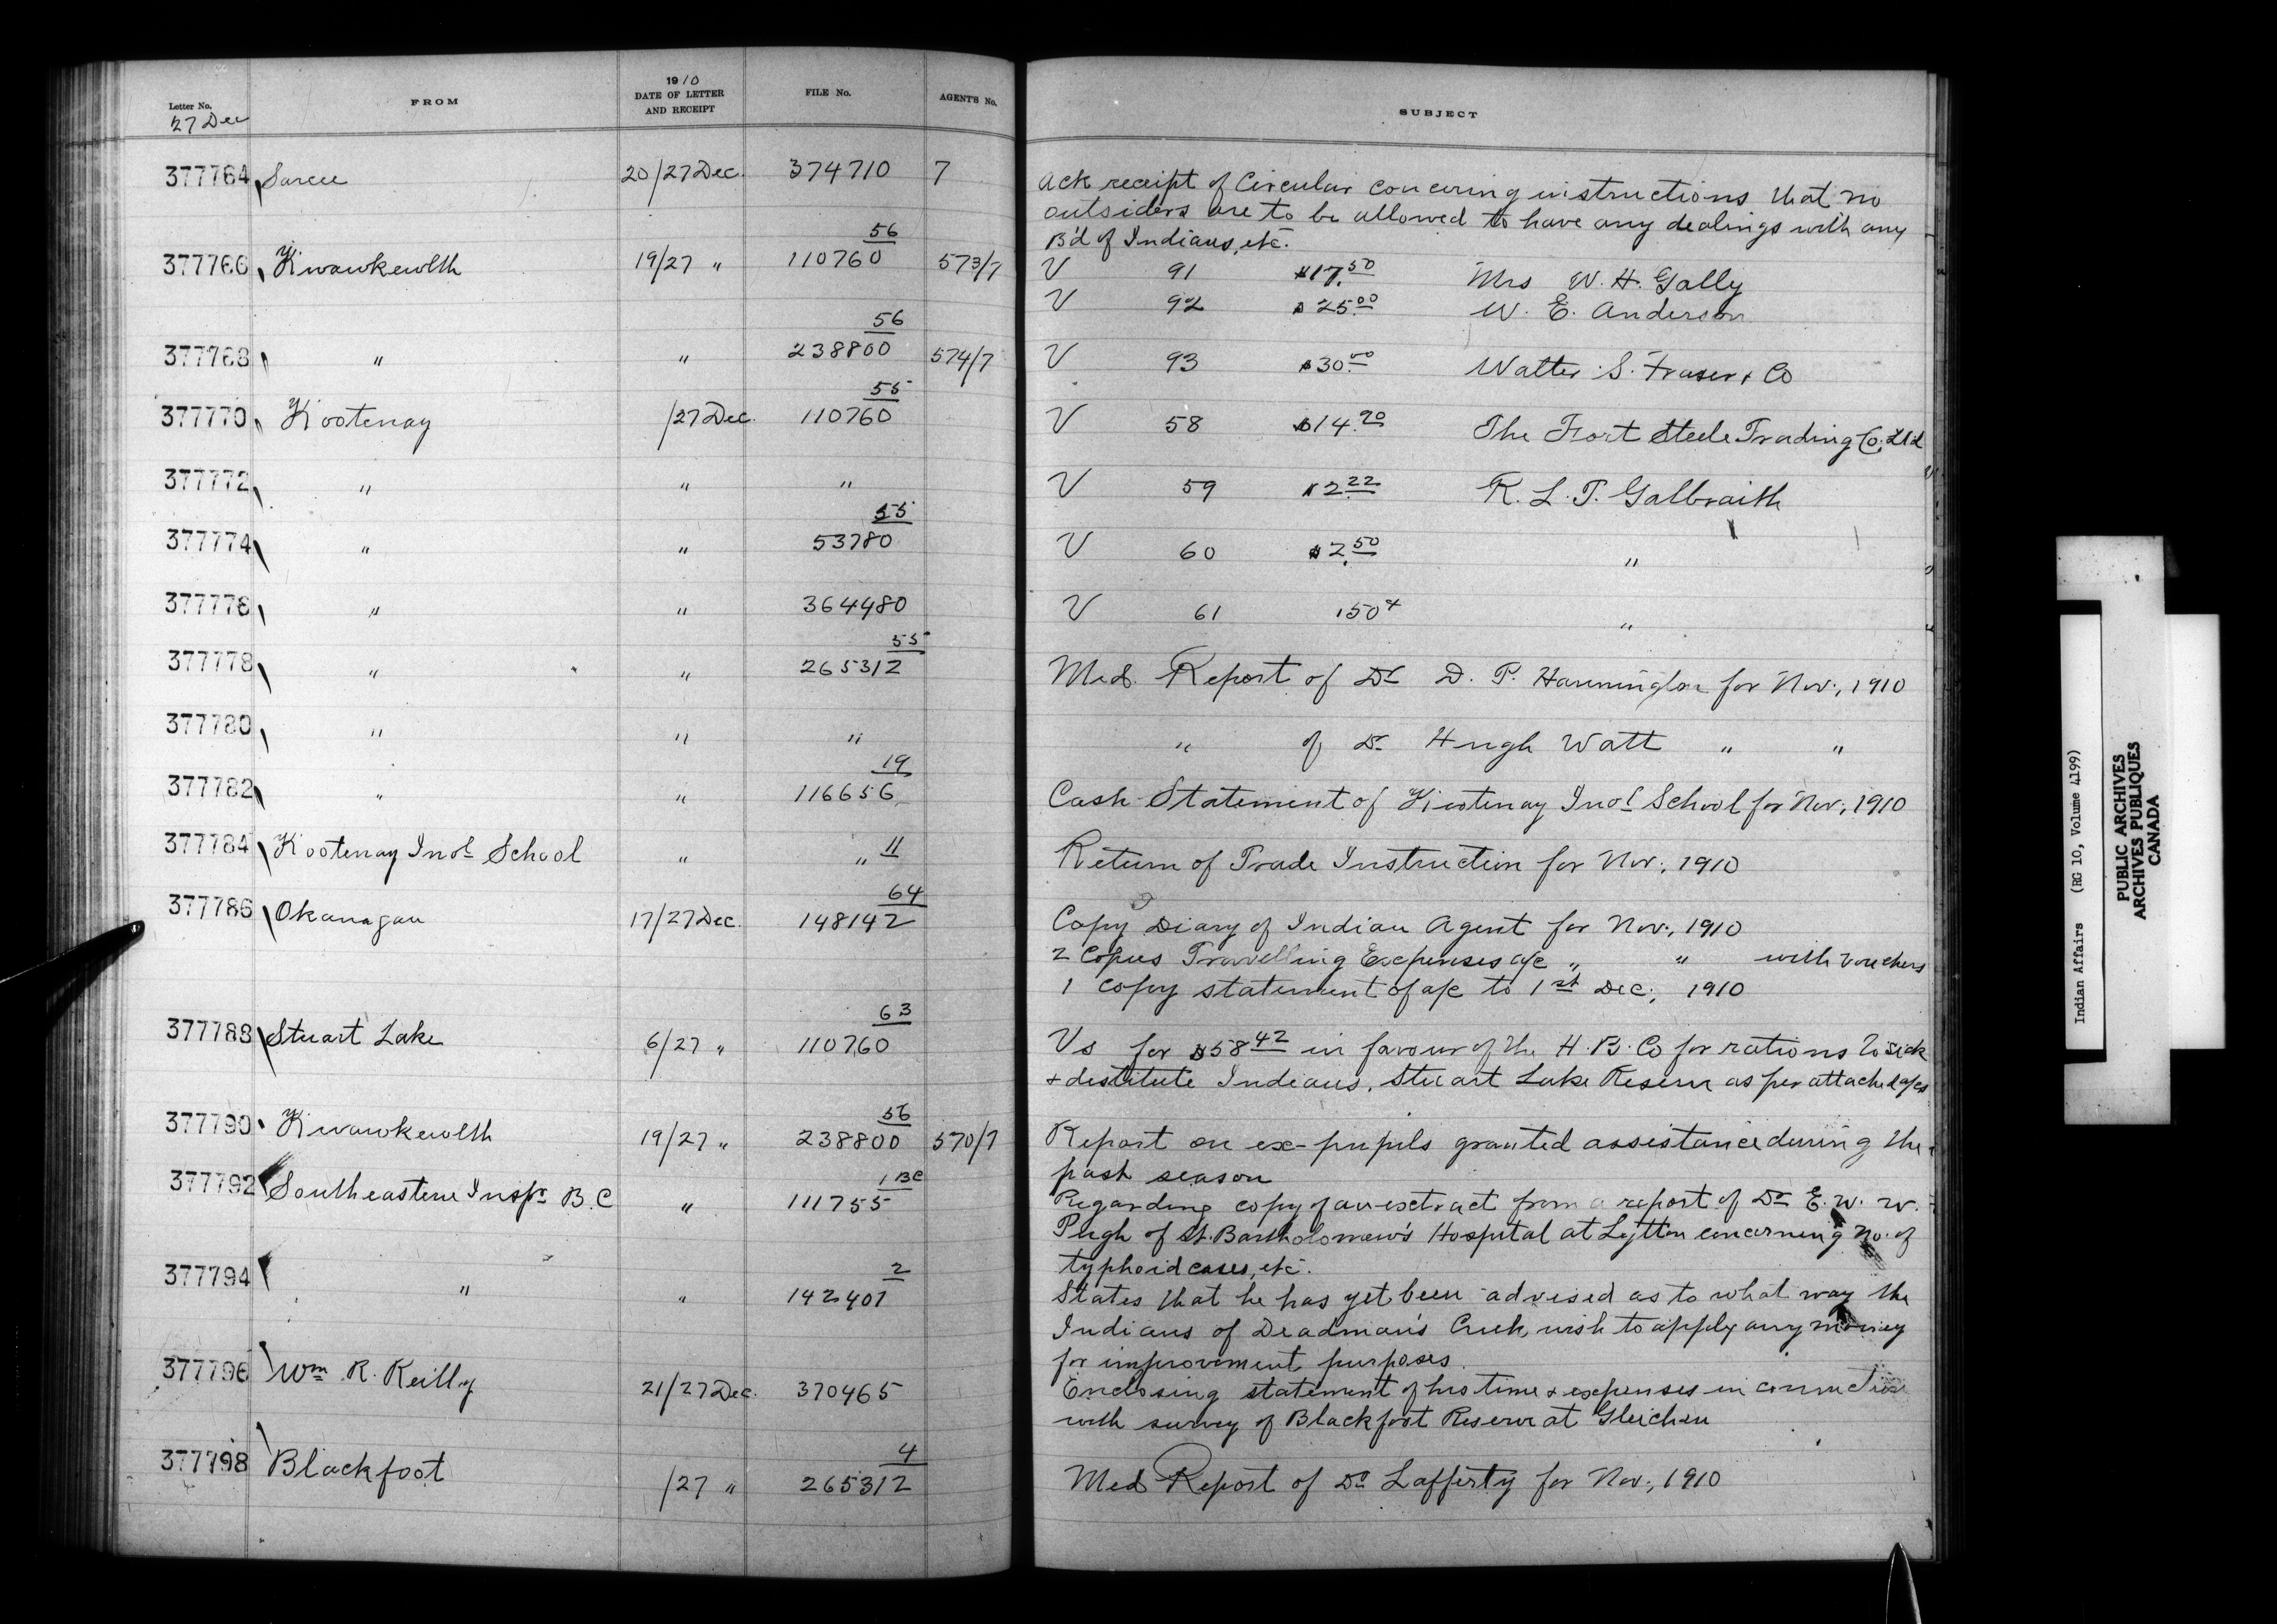 1910
Letter No. FROM DATE OF LETTER AND RECEIPT FILE No. AGENT'S No. SUBJECT
27 Dec
377764 Sarcee 20/27 Dec. 374710 7 Ack receipt of Circular concerning instructions that no
outsiders are to be allowed to have any dealings with any
B'd of Indians, etc.
56
377766 Kwawkewlth 19/27 " 110760 573/7 V 91 $17.50 Mrs W. H. Gally
V 92 $25.00 W. E. Anderson
56
377768 " " 238800 574/7 V 93 $30.00 Walter S. Fraser & Co
55
377770 Kootenay /27 Dec. 110760 V 58 $14.90 The Fort Steele Trading Co. Ltd
377772 " " " V 59 $2.22 R. L. T. Galbraith
55
377774 " " 53780 V 60 $2.50 "
377776 " " 364480 V 61 150 "
55
377778 " " 265312 Med. Report of Dr D. P. Hannington for Nov., 1910
377780 " " " " of Dr Hugh Watt " "
19
377782 " " 116656 Cash Statement of Kootenay Indl School for Nov., 1910
377784 Kootenay Indl School " " 11 Return of Trade Instruction for Nov., 1910
64
377786 Okanagan 17/27 Dec. 148142 Copy Diary of Indian Agent for Nov., 1910
2 Copies Travelling Expenses a/c " " with vouchers
1 copy statement of a/c to 1st Dec., 1910
63
377788 Stuart Lake 6/27 " 110760 Vs for $58.42 in favour of the H. B. Co for rations to sick
& destitute Indians, Stuart Lake Reserve as per attached a/cs
56
377790 Kwawkewlth 19/27 " 238800 570/7 Report on ex-pupils granted assistance during the
past season
1 BC
377792 Southeastern Inspr B. C " 111755 Regarding copy of an extract from a report of Dr E. W. W.
Pugh of St. Bartholomew's Hospital at Lytton concerning no. of
typhoid cases, etc.
2
377794 " " 142401 States that he has yet been advised as to what way the
Indians of Deadman's Creek wish to apply any money
for improvement purposes.
377796 Wm R. Reilly 21/27 Dec. 370465 Enclosing statement of his time & expenses in connection
with survey of Blackfoot Reserve at Gleichen
4
377798 Blackfoot /27 " 265312 Med Report of Dr Lafferty for Nov., 1910
Indian Affairs (RG 10, Volume 4199)
PUBLIC ARCHIVES
ARCHIVES PUBLIQUES
CANADA